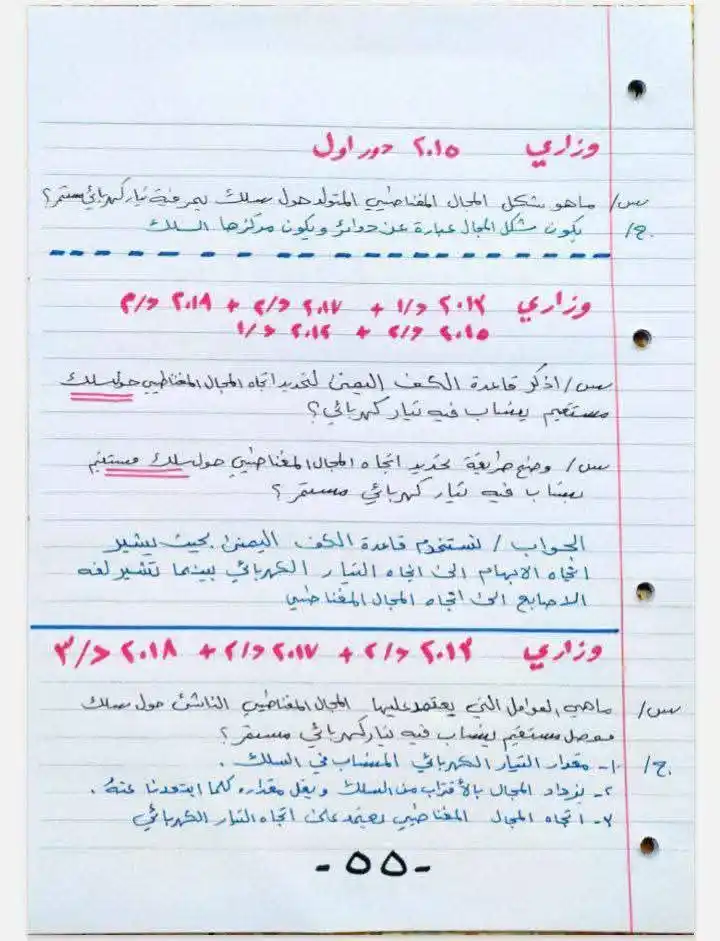 وزاري ٢٠١٥ دور اول
س/ ماهو شكل المجال المغناطيسي المتولد حول سلك يمر فيه تيار كهربائي مستمر؟
ج/ يكون شكل المجال عبارة عن دوائر ويكون مركزها السلك
وزاري ٢٠١٣ د/١ + ٢٠١٧ د/٢ + ٢٠١٨ د/٣
٢٠١٥ د/٢ + ٢٠١٢ د/١
س/ اذكر قاعدة الكف اليمنى لتحديد اتجاه المجال المغناطيسي حول سلك
مستقيم ينساب فيه تيار كهربائي؟
س/ وضح طريقة تحديد اتجاه المجال المغناطيسي حول سلك مستقيم
ينساب فيه تيار كهربائي مستمر؟
الجواب / نستخدم قاعدة الكف اليمنى بحيث يشير
اتجاه الابهام الى اتجاه التيار الكهربائي بينما تشير لفه
الاصابع الى اتجاه المجال المغناطيسي
وزاري ٢٠١٣ د/٢ + ٢٠١٧ د/٢ + ٢٠١٨ د/٣
س/ ماهي العوامل التي يعتمد عليها المجال المغناطيسي الناشئ حول سلك
موصل مستقيم ينساب فيه تيار كهربائي مستمر؟
ج/ ١- مقدار التيار الكهربائي المنساب في السلك.
٢- يزداد المجال بالأقتراب من السلك ويقل مقداره كلما ابتعدنا عنه.
٣- اتجاه المجال المغناطيسي يعتمد على اتجاه التيار الكهربائي
-٥٥-